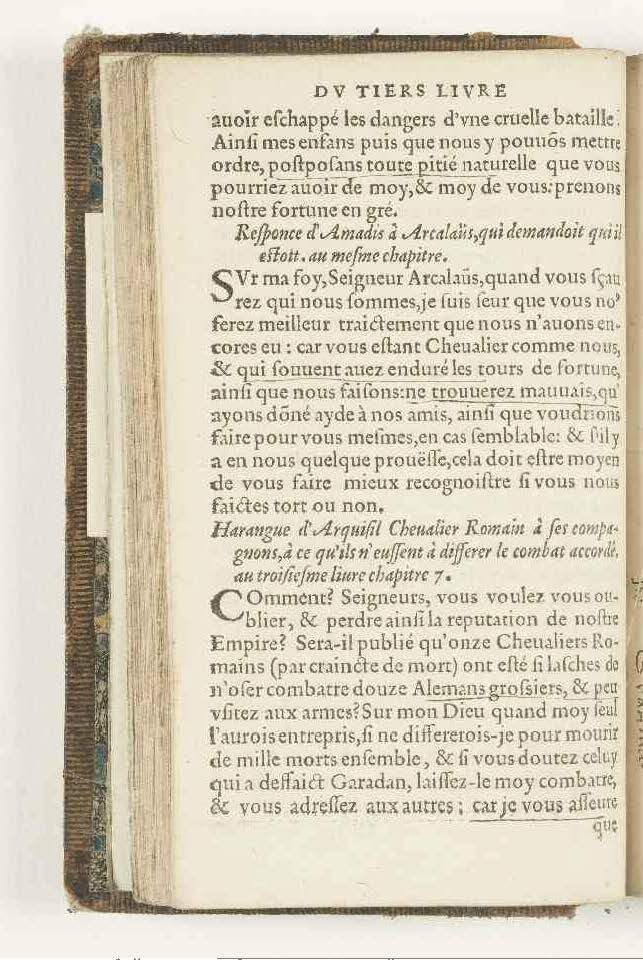 DV TIERS LIVRE
auoir eſchappé les dangers d'vne cruelle bataille.
Ainſi mes enfans puis que nous y pouuõs mettre
ordre, poſtpoſans toute pitié naturelle que vous
pourriez auoir de moy, & moy de vous: prenons
noſtre fortune en gré.
Reſponce d'Amadis à Arcalaüs, qui demandoit qui il
eſtoit. au meſme chapitre.
SVr ma foy, Seigneur Arcalaüs, quand vous ſçau
rez qui nous ſommes, je ſuis ſeur que vous noꝰ
ferez meilleur traictement que nous n'auons en-
cores eu : car vous eſtant Cheualier comme nous,
& qui ſouuent auez enduré les tours de fortune,
ainſi que nous faiſons: ne trouuerez mauuais, qu'
ayons dõné ayde à nos amis, ainſi que voudrions
faire pour vous meſmes, en cas ſemblable: & s'il y
a en nous quelque prouëſſe, cela doit eſtre moyen
de vous faire mieux recognoiſtre ſi vous nous
faictes tort ou non.
Harangue d'Arquiſil Cheualier Romain à ſes compa-
gnons, à ce qu'ils n'euſſent à differer le combat accordé,
au troiſieſme liure chapitre 7.
COmment? Seigneurs, vous voulez vous ou-
blier, & perdre ainſi la reputation de noſtre
Empire? Sera-il publié qu'onze Cheualiers Ro-
mains (par craincte de mort) ont eſté ſi laſches de
n'oſer combatre douze Alemans groſsiers, & peu
vſitez aux armes? Sur mon Dieu quand moy ſeul
l'aurois entrepris, ſi ne differerois-je pour mourir
de mille morts enſemble, & ſi vous doutez celuy
qui a deffaict Garadan, laiſſez-le moy combatre,
& vous adreſſez aux autres ; car je vous aſſeure
que